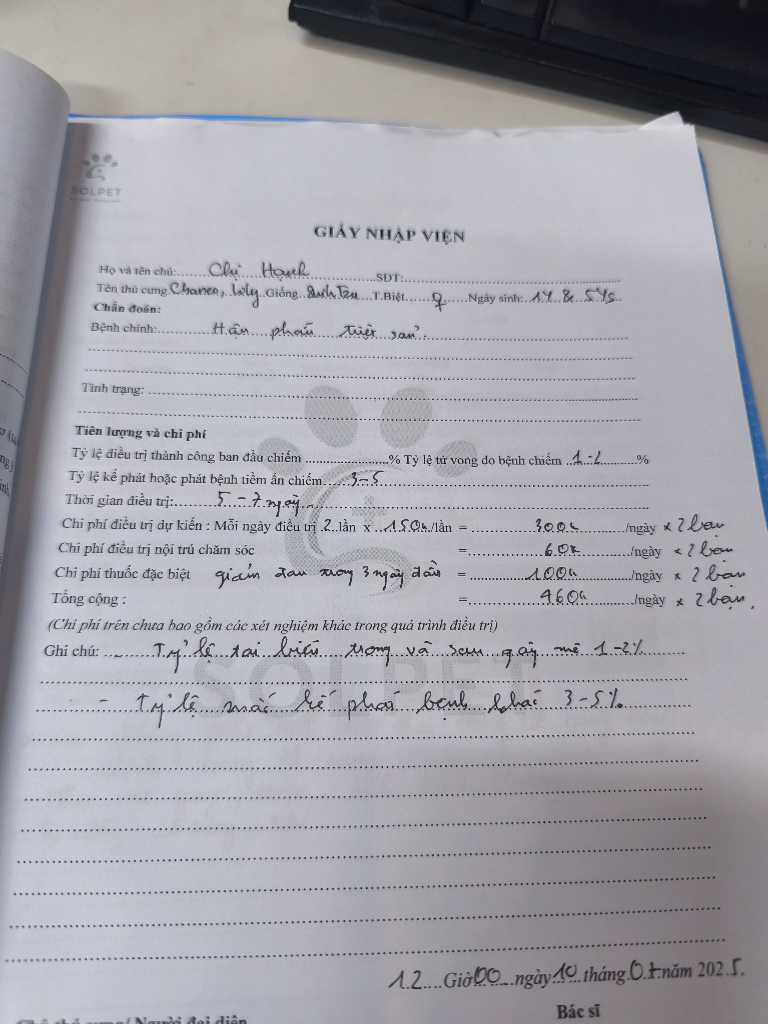 SOLPET
GIẤY NHẬP VIỆN
Họ và tên chủ: Chị Hạnh SĐT:
Tên thú cưng Chanee, Lily Giống T.Biệt ♀ Ngày sinh: 1Y & 5Ys
Chẩn đoán:
Bệnh chính: Hậu phẫu triệt sản.
Tình trạng:
Tiên lượng và chi phí
Tỷ lệ điều trị thành công ban đầu chiếm % Tỷ lệ tử vong do bệnh chiếm 1-2 %
Tỷ lệ kế phát hoặc phát bệnh tiềm ẩn chiếm 3-5
Thời gian điều trị: 5 - 7 ngày
Chi phí điều trị dự kiến : Mỗi ngày điều trị 2 lần x 150k/lần = 300k /ngày x 2 bạn
Chi phí điều trị nội trú chăm sóc = 60k /ngày x 2 bạn
Chi phí thuốc đặc biệt giảm đau trong 3 ngày đầu = 100k /ngày x 2 bạn
Tổng cộng : = 460k /ngày x 2 bạn.
(Chi phí trên chưa bao gồm các xét nghiệm khác trong quá trình điều trị)
Ghi chú: Tỷ lệ tai biến trong và sau gây mê 1-2%
- Tỷ lệ mắc kế phát bệnh khác 3-5%
SOLPET
12 Giờ 00 ngày 10 tháng 07 năm 2025.
Chủ thú cưng/ Người đại diện
Bác sĩ